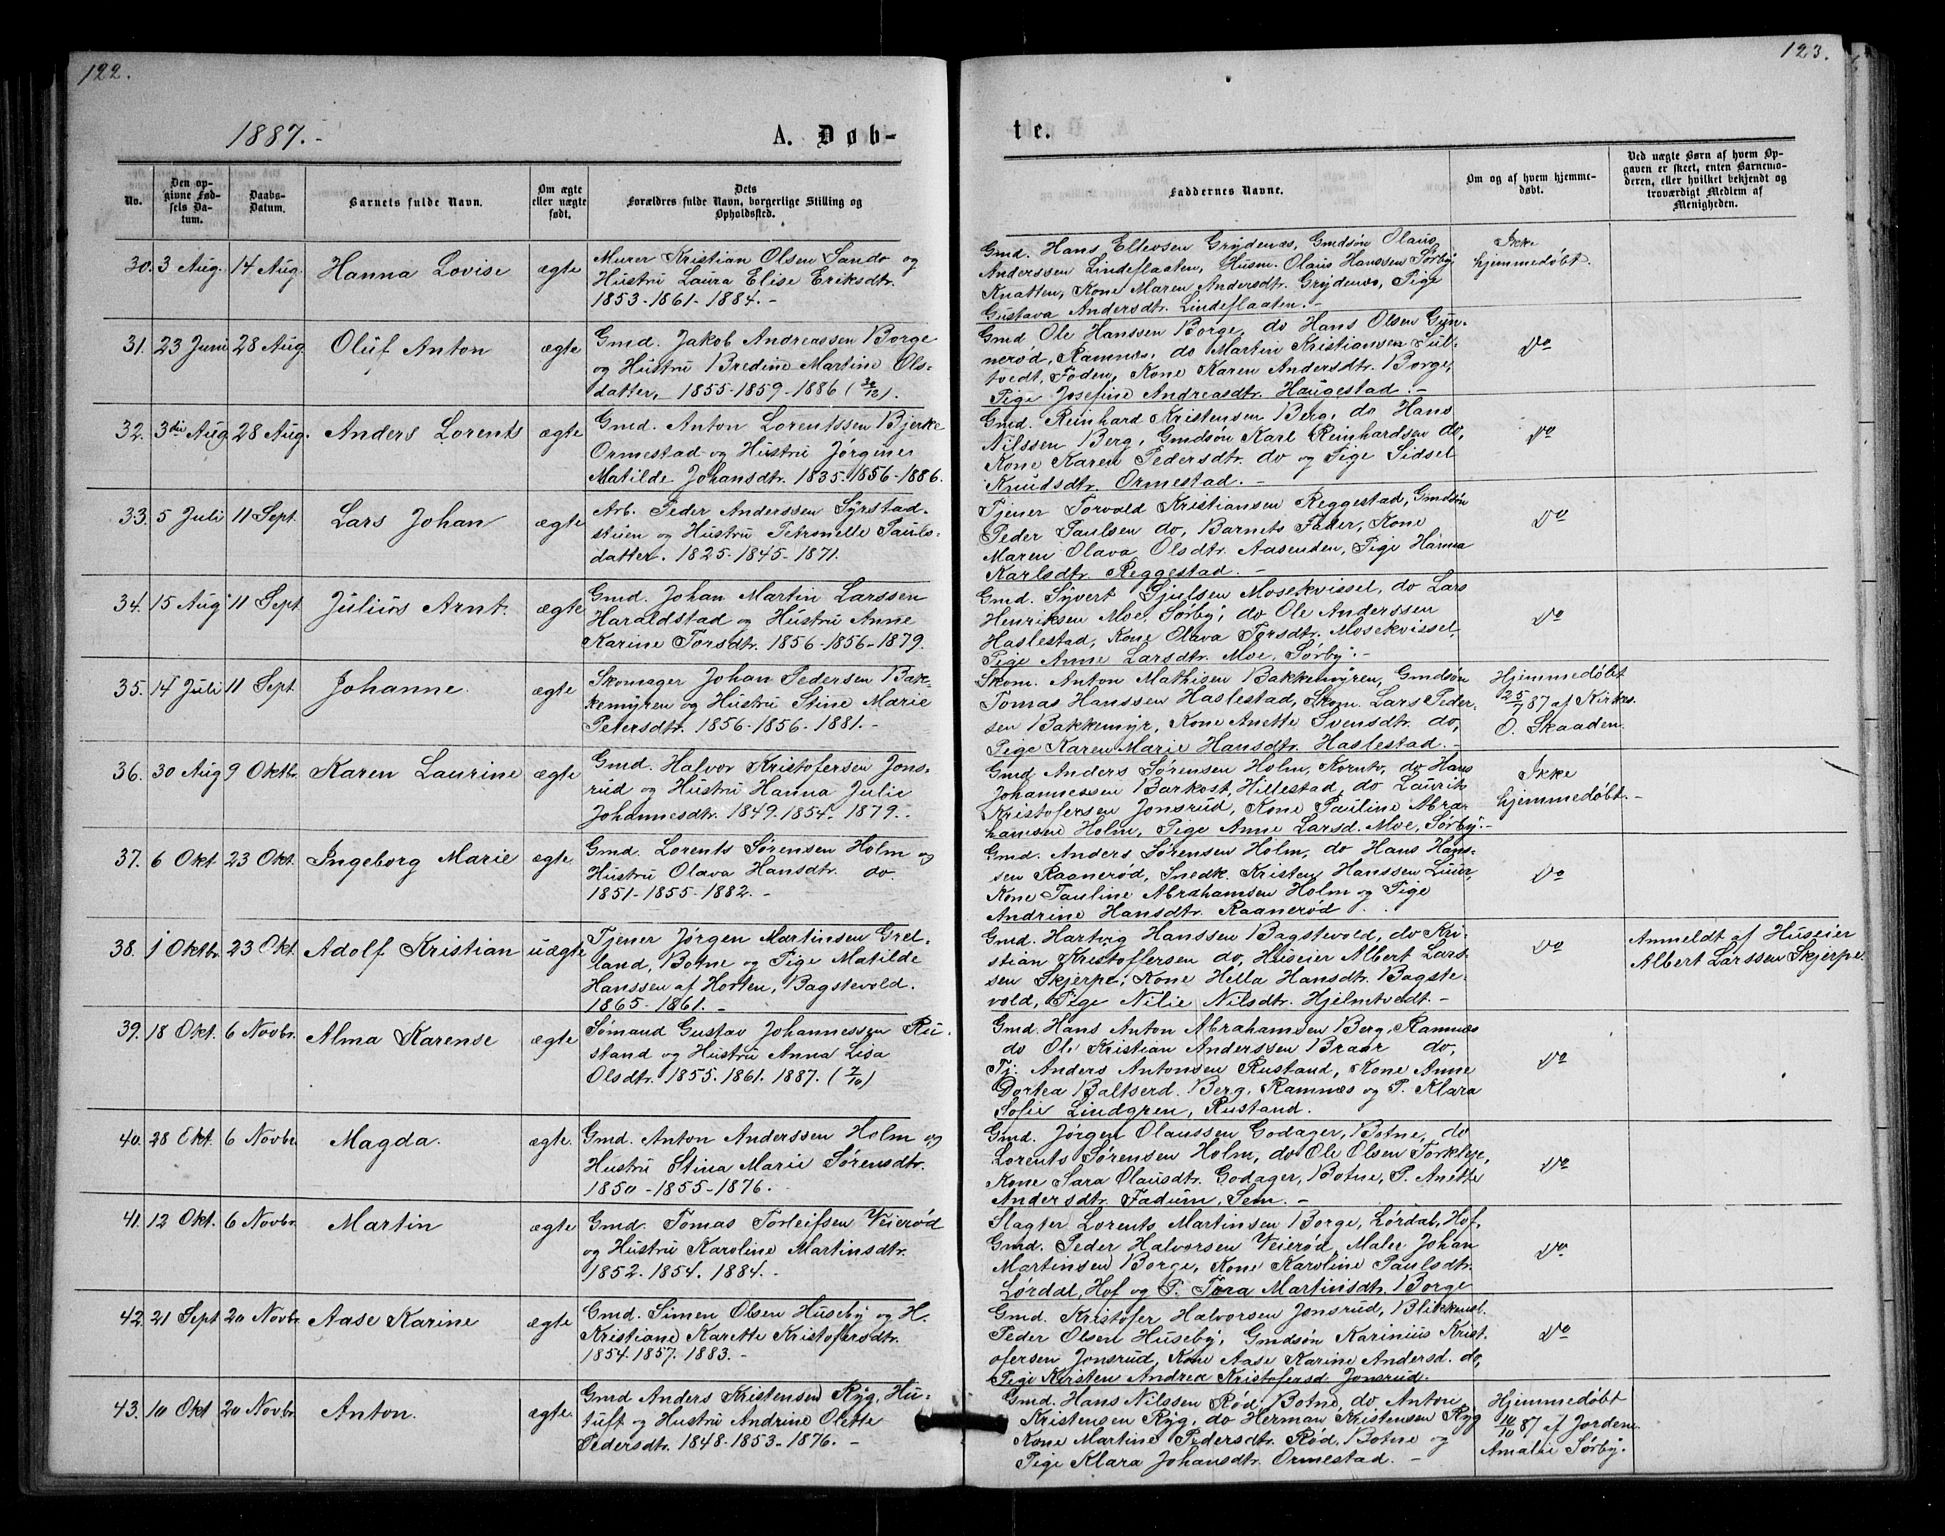 122.
123.
1887.-
A. Døb-
te.
No.
Den op-
givne Fød-
sels Da-
tum.
Daabs-
Datum.
Barnets fulde Navn.
Om ægte
eller uægte
født.
Dets
Forældres fulde Navn, borgerlige Stilling og
Opholdsted.
Faddernes Navne.
Om og af hvem hjemme-
døbt.
Ved uægte Børn af hvem Op-
gaven er skeet, enten Barnemo-
deren, eller hvilket bekjendt og
troværdigt Medlem af
Menigheden.
30. 3 Aug. 14 Aug. Hanna Lovise ægte
Murer Kristian Olsen Sando og
Hustru Laura Elise Eriksdtr.
1853-1861-1884.-
Gmd. Hans Ellevsen Grydenes, Gmdsøn Olaus
Anderssen Lindeflaaten, Husm. Olaus Hanssen Sørby,
Knatten, Kone Maren Andersdtr. Grydenes, Pige
Gustava Andersdtr. Lindeflaaten.-
Ikke
hjemmedøbt.
31. 23 Juni 28 Aug. Oluf Anton ægte
Gmd. Jakob Andreassen Borge
og Hustru Bredine Martine Ols-
datter, 1855-1859-1886 (30/12).
Gmd Ole Hanssen Borge, do Hans Olsen Gun-
nerød, Ramnes, do Martin Kristiansen Ful-
tvedt, Foden, Kone Karen Andersdtr. Borge,
Pige Josefine Andreasdtr. Haugestad.-
Do
32. 3die Aug 28 Aug. Anders Lorents ægte
Gmd. Anton Lorentssen Bjerke
Ormestad og Hustru Jørgine
Matilde Johansdtr. 1835-1856-1886.
Gmd. Reinhard Kristensen Berg, do Hans
Nilssen Berg, Gmdsøn Karl Reinhardsen do,
Kone Karen Pedersdtr. do og Pige Sidsel
Knudsdtr. Ormestad.-
Do
33. 5 Juli 11 Sept. Lars Johan ægte
Arb. Peder Anderssen Syrstad-
stuen og Hustru Petronelle Pauls-
datter. 1825-1845-1871.
Tjener Torvold Kristiansen Reggestad, Gmdsøn
Peder Paulsen do, Barnets Fader, Kone
Maren Olava Olsdtr. Aasenden, Pige Hanna
Karlsdtr. Reggestad.-
Do
34. 15 Aug 11 Sept. Julius Arnt. ægte
Gmd. Johan Martin Larssen
Haraldstad og Hustru Anne
Karine Torsdtr. 1856-1856-1879.
Gmd. Syvert Gjulsen Mosekvissel, do Lars
Henriksen Moe, Sørby, do Ole Anderssen
Haslestad, Kone Olava Torsdtr. Mosekvissel,
Pige Anne Larsdtr. Moe, Sørby.-
Do
35. 14 Juli 11 Sept. Johanne. ægte
Skomager Johan Pedersen Bak-
kemyren og Hustru Stine Marie
Petersdtr. 1856-1856-1881.-
Skom. Anton Mathisen Bakkemyren, Gmdsøn
Tomas Hanssen Haslestad, Skom. Lars Peder-
sen Bakkemyr, Kone Anette Svensdtr. do,
Pige Karen Marie Hansdtr. Haslestad.-
Hjemmedøbt
25/7 87 af Kirkes.
O. Skaaden.
36. 30 Aug 9 Oktbr. Karen Laurine ægte
Gmd. Halvor Kristofersen Jons-
rud og Hustru Hanna Julie
Johannesdtr. 1849-1854-1879.-
Gmd Anders Sørensen Holm, Kornto, do Hans
Johannessen Barkost, Hillestad, do Laurits
Kristofersen Jonsrud, Kone Pauline Abra-
hamsen Holm, Pige Anne Larsd. Moe, Sørby.-
Ikke
hjemmedøbt.-
37. 6 Okt 23 Okt. Ingeborg Marie ægte
Gmd. Lorents Sørensen Holm og
Hustru Olava Hansdtr. do.
1851-1855-1882.-
Gmd. Anders Sørensen Holm, do Hans Hans-
sen Raanerød, Snedk. Kristen Hanssen Luur,
Kone Pauline Abrahamsen Holm og Pige
Andrine Hansdtr. Raanerød
Do
38. 1 Oktbr. 23 Okt. Adolf Kristian uægte
Tjener Jørgen Martinsen Gret-
land, Botne og Pige Matilde
Hanssen af Horten, Bagstevold.
1865-1861.-
Gmd. Hartvig Hanssen Bagstevold, do Kri-
stian Kristoffersen do, Huseier Albert Lars-
sen Skjerpe, Kone Hella Hansdtr. Bagste-
vold, Pige Nilie Nilsdtr. Hjelmtvedt.-
Do
Anmeldt af Huseier
Albert Larssen Skjerpe.
39. 18 Okt. 6 Novbr. Alma Karense ægte
Sømand Gustav Johannessen Ru-
stand og Hustru Anna Lisa
Olsdtr. 1855. 1861. 1887. (2/10)
Gmd. Hans Anton Abrahamsen Berg, Ramnes
do Ole Kristian Anderssen Braar do,
Tj. Anders Antonsen Rustand, Kone Anne
Dortea Baltserd. Berg, Ramnes og P. Klara
Sofie Lindgren, Rustand.
Do
40. 28 Okt. 6 Novbr. Magda. ægte
Gmd. Anton Anderssen Holm og
Hustru Stina Marie Sørensdtr.
1850-1855-1876.-
Gmd. Jørgen Olaussen Godager, Botne, do
Lorents Sørensen Holm, do Ole Olsen Torkleje,
Kone Sara Olausdtr. Godager, Botne, P. Anette
Andersdtr. Fadum, Sem.-
Do
41. 12 Okt. 6 Novbr. Martin ægte
Gmd. Tomas Torleifsen Veierød
og Hustru Karoline Martinsdtr.
1852. 1854. 1884.-
Slagter Lorents Martinsen Borge, Lørdal, Hof,
Gmd. Peder Halvorsen Veierød, Maler Johan
Martinsen Borge, Kone Karoline Paulsdtr.
Lørdal, Hof og P. Tora Martinsdtr. Borge
Do
42. 21 Sept 20 Novbr. Aase Karine ægte
Gmd. Simen Olsen Huseby og H.
Kristiane Karette Kristofersdtr.
1854. 1857. 1883.-
Gmd. Kristofer Halvorsen Jonsrud, Blikkensl.
Peder Olsen Huseby, Gmdsøn Karinius Krist-
ofersen Jonsrud, Kone Aase Karine Andersd. do,
Pige Kirsten Andrea Kristofersd Jonsrud.
Do
43. 10 Okt 20 Novbr. Anton. ægte
Gmd Anders Kristensen Ryg, Hu-
tuft og Hustru Andrine Olette
Pedersdtr. 1848-1853-1876.-
Gmd. Hans Nilssen Rød, Botne, do Anton
Kristensen Ryg, do Herman Kristensen Ryg
Kone Martine Pedersdtr. Rød, Botne og
Pige Klara Johansdtr. Ormestad.-
Hjemmedøbt
10/10 87 af Jordem.
Amalie Sørby.